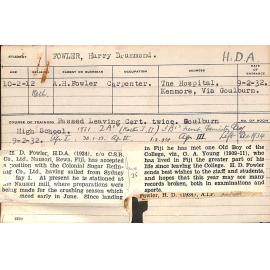 STUDENT FOWLER, Harry Drummond. H.D.A
AGE RELIGION PARENT OR GUARDIAN OCCUPATION ADDRESS DATE OF
10-2-12 A.H.Fowler Carpenter. The Hospital, 9-2-32.
Meth. Kenmore, Via Goulburn.
COURSE OF TRAINING Passed Leaving Cert. twice. Goulburn NO. OF ROOM
High School. 1931
9-2-32.
H. D. Fowler, H.D.A. (1934), c/o C.S.R.
Co., Ltd., Nausori, Rewa, Fiji, has accepted
a position with the Colonial Sugar Refin-
ing Co., Ltd., having sailed from Sydney
May 1. At present he is stationed at
the Nausori mill, where preparations were
being made for the crushing season which
in Fiji he has met one Old Boy of the
College, viz., O. A. Young (1909-11), who
has lived in Fiji the greater part of his
life since leaving College. H. D. Fowler
sends best wishes to the staff and students,
and hopes that this year may see many
records broken, both in examinations and
sports.
Fowler, H. D. (1934), A.I.F.